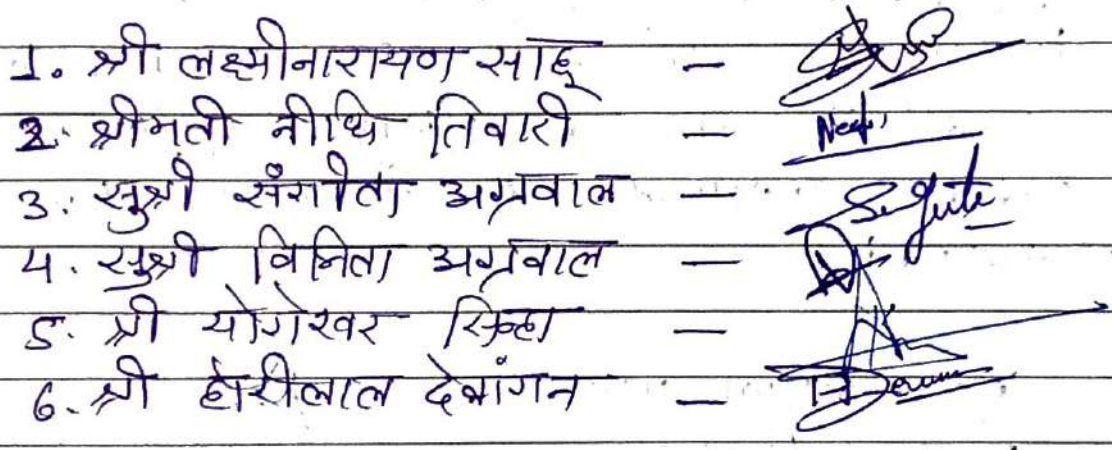 1. श्री लक्ष्मीनारायण साहू -
2. श्रीमती नीधि तिवारी - Needhi
3. सुश्री संगीता अग्रवाल - Sangita
4. सुश्री विनिता अग्रवाल -
5. श्री योगेश्वर सिन्हा -
6. श्री होरीलाल देवांगन -